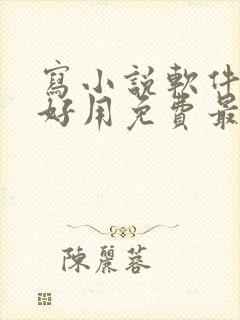 寫小說軟件
好用免費最
陳麗蓉